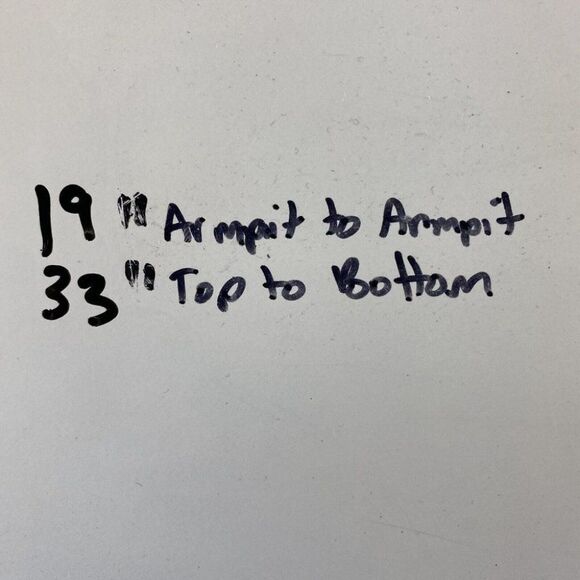 19" Armpit to Armpit
33" Top to Bottom